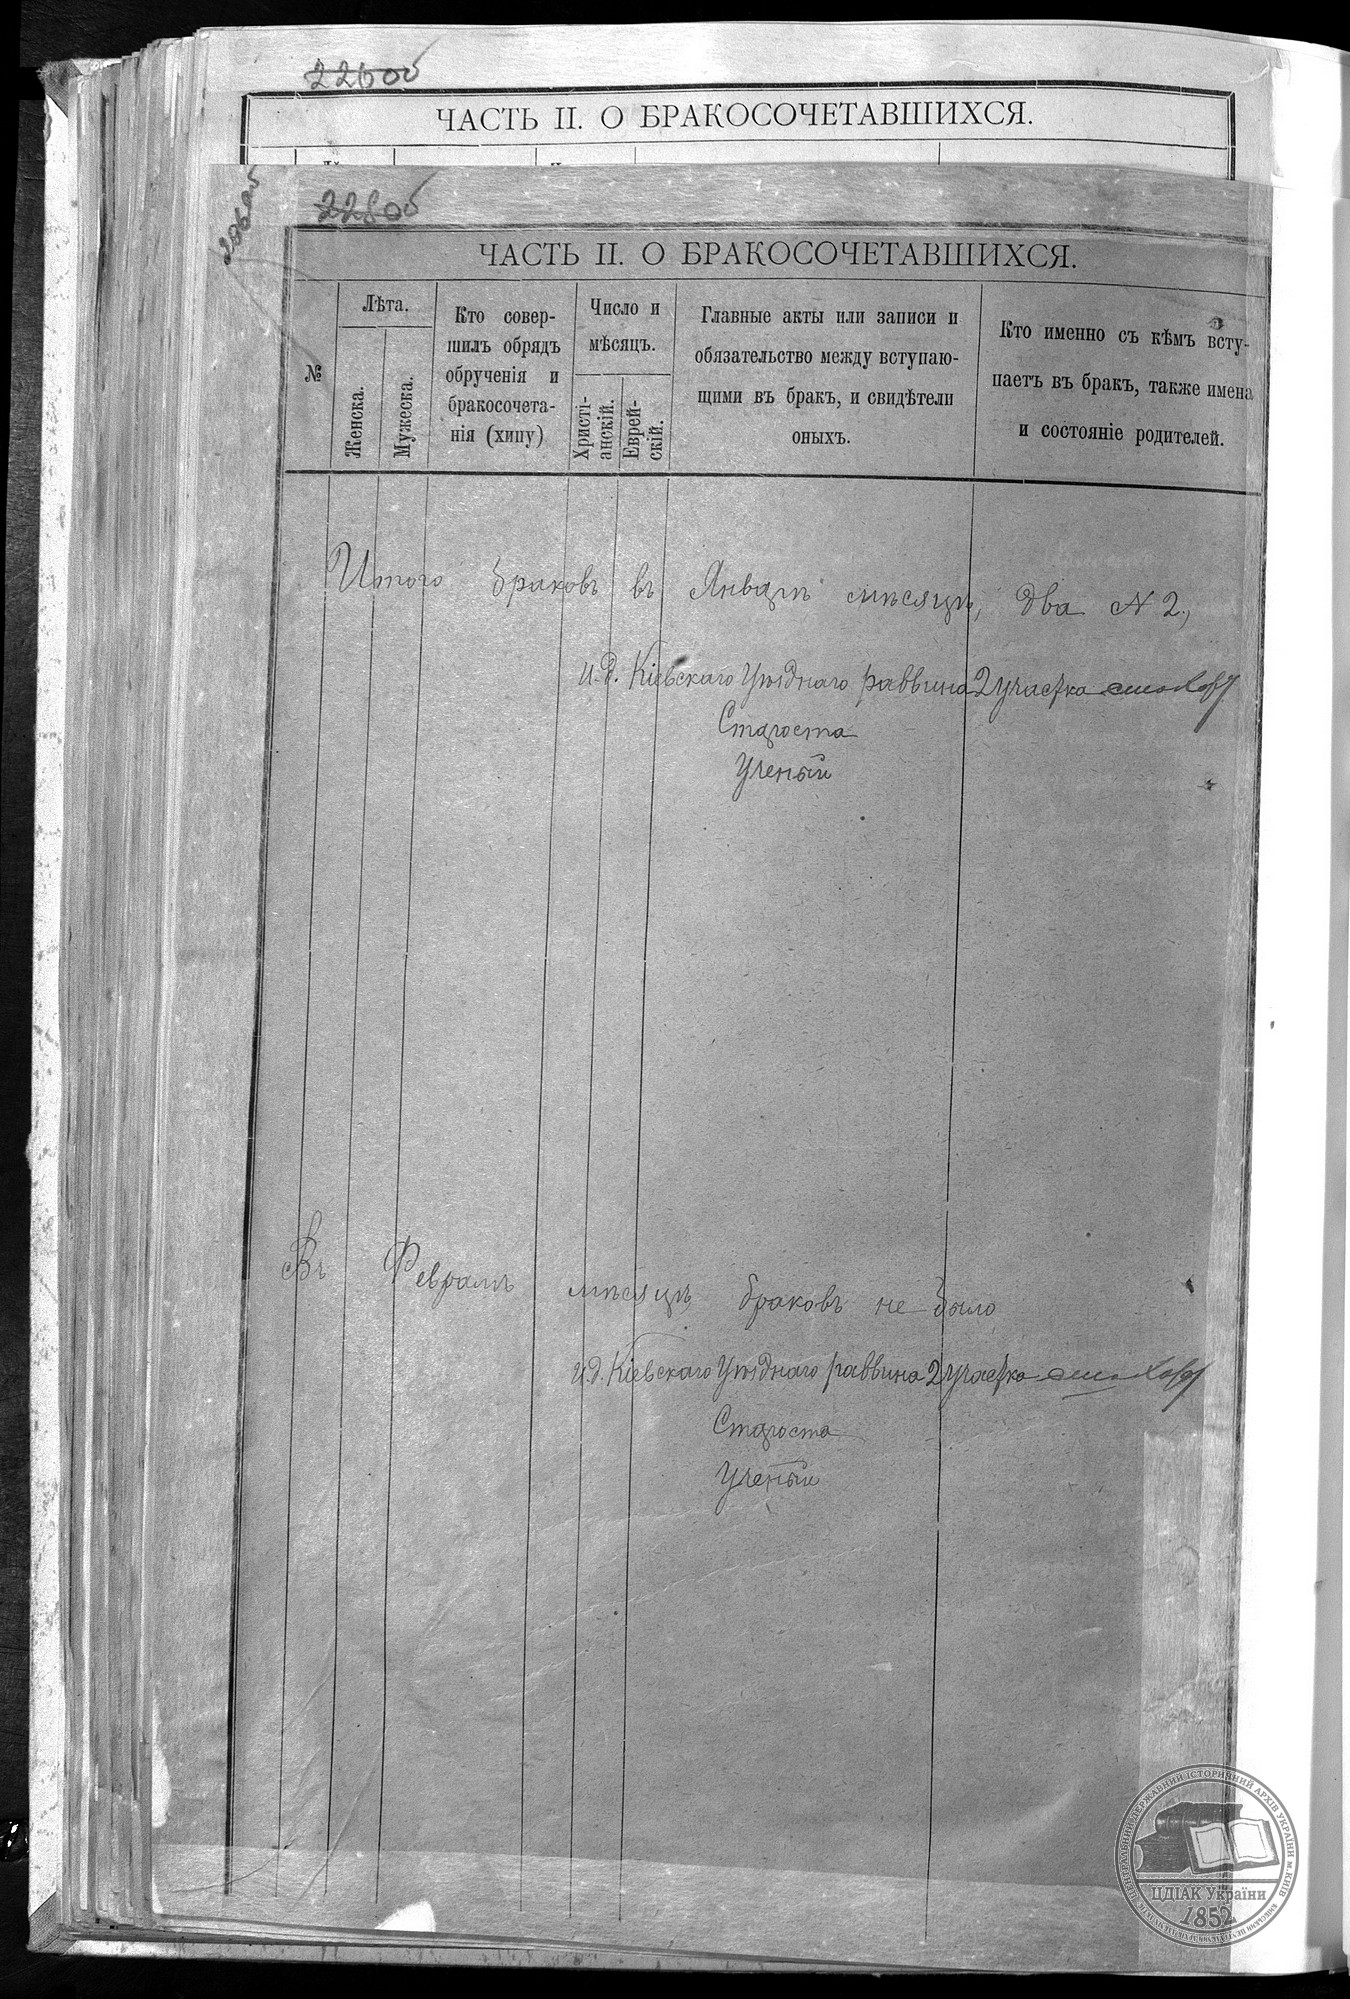 226об
ЧАСТЬ II. О БРАКОСОЧЕТАВШИХСЯ.
228об
ЧАСТЬ II. О БРАКОСОЧЕТАВШИХСЯ.
№
Лѣта.
Женска.
Мужеска.
Кто совер-
шилъ обрядъ
обрученія и
бракосочета-
нія (хипу)
Число и
мѣсяцъ.
Христі-
анскій.
Еврей-
скій.
Главные акты или записи и
обязательство между вступаю-
щими въ брак, и свидѣтели
оныхъ.
Кто именно съ кѣмъ всту-
паетъ въ брак, также имена
и состояніе родителей.
Итого браковъ въ Январѣ мѣсяцѣ, два N 2,
и.д. Кіевскаго Уѣзднаго раввина 2 участка
Староста
Ученый
Въ Февралѣ мѣсяцѣ браковъ не было
и.д. Кіевскаго Уѣзднаго раввина 2 участка
Староста
Ученый
ЦЕНТРАЛЬНИЙ ДЕРЖАВНИЙ ІСТОРИЧНИЙ АРХІВ УКРАЇНИ м. КИЇВ
ЦДІАК України
1852